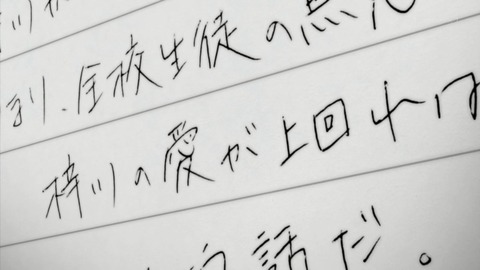 まり、全校生徒の無
梓川の愛が上回れ
話だ。